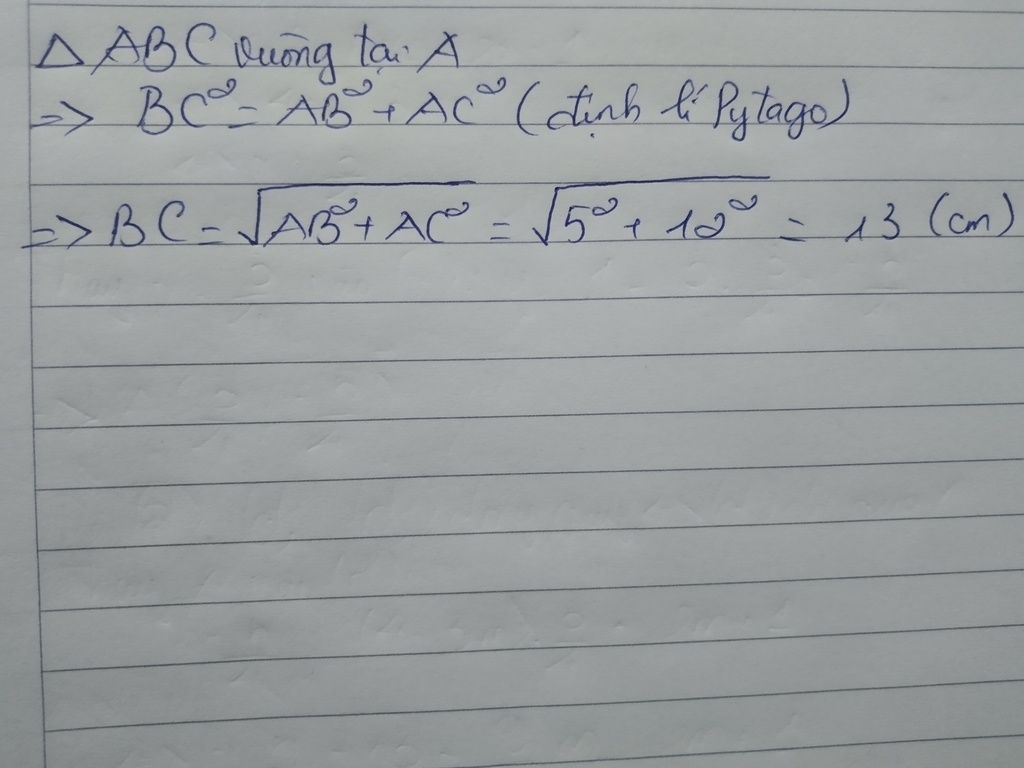 Δ ABC vuông tại A
=> BC² = AB² + AC² (định lí Pytago)
=> BC = √AB² + AC² = √5² + 12² = 13 (cm)